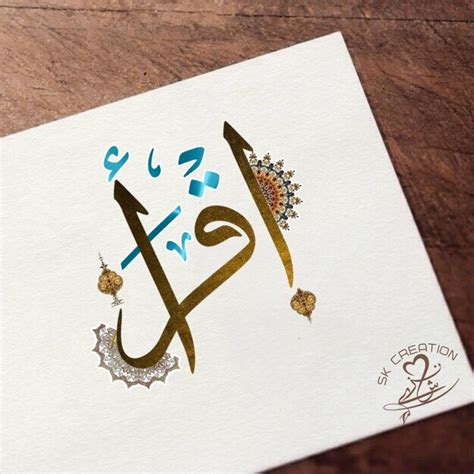 اقرأ
SK CREATION